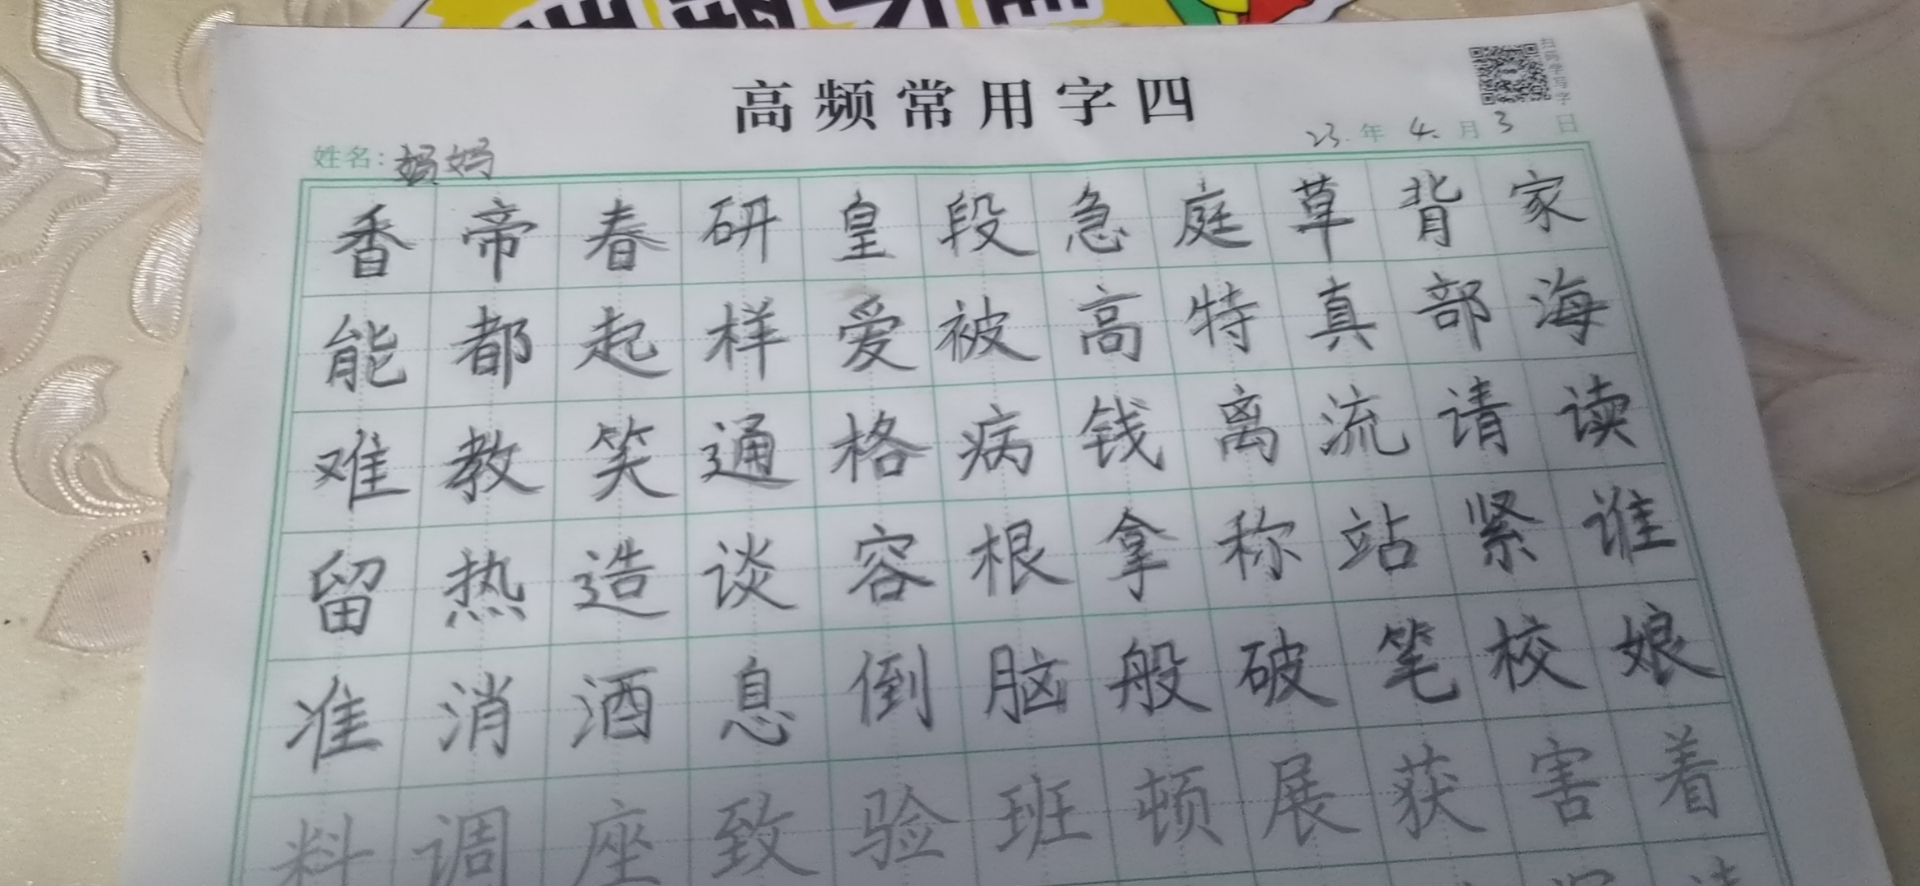 高频常用字四
扫码学写字
姓名：妈妈 23.年 4.月 3 日
香帝春研皇段急庭草背家
能都起样爱被高特真部海
难教笑通格病钱离流请读
留热造谈容根拿称站紧谁
准消酒息倒脑般破笔校娘
料调座致验班顿展获害着